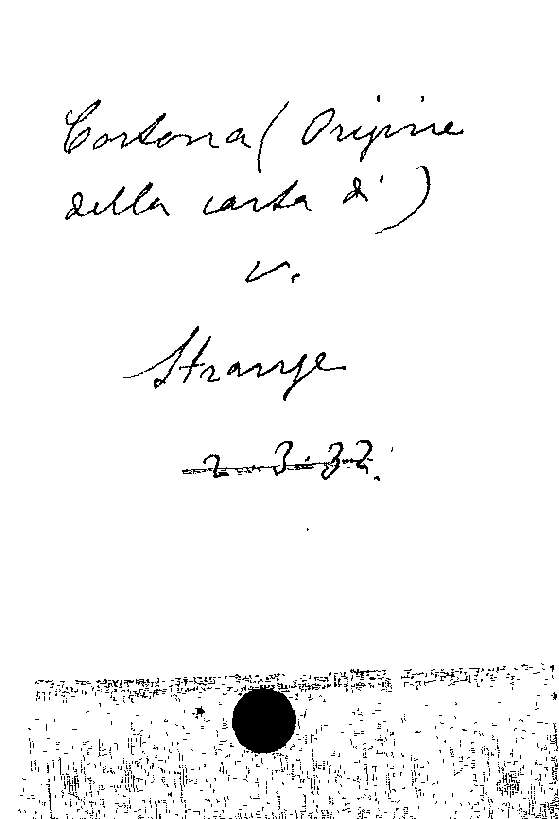 Cortona (Origine
della carta di)
v.
Strange
2.3.32.